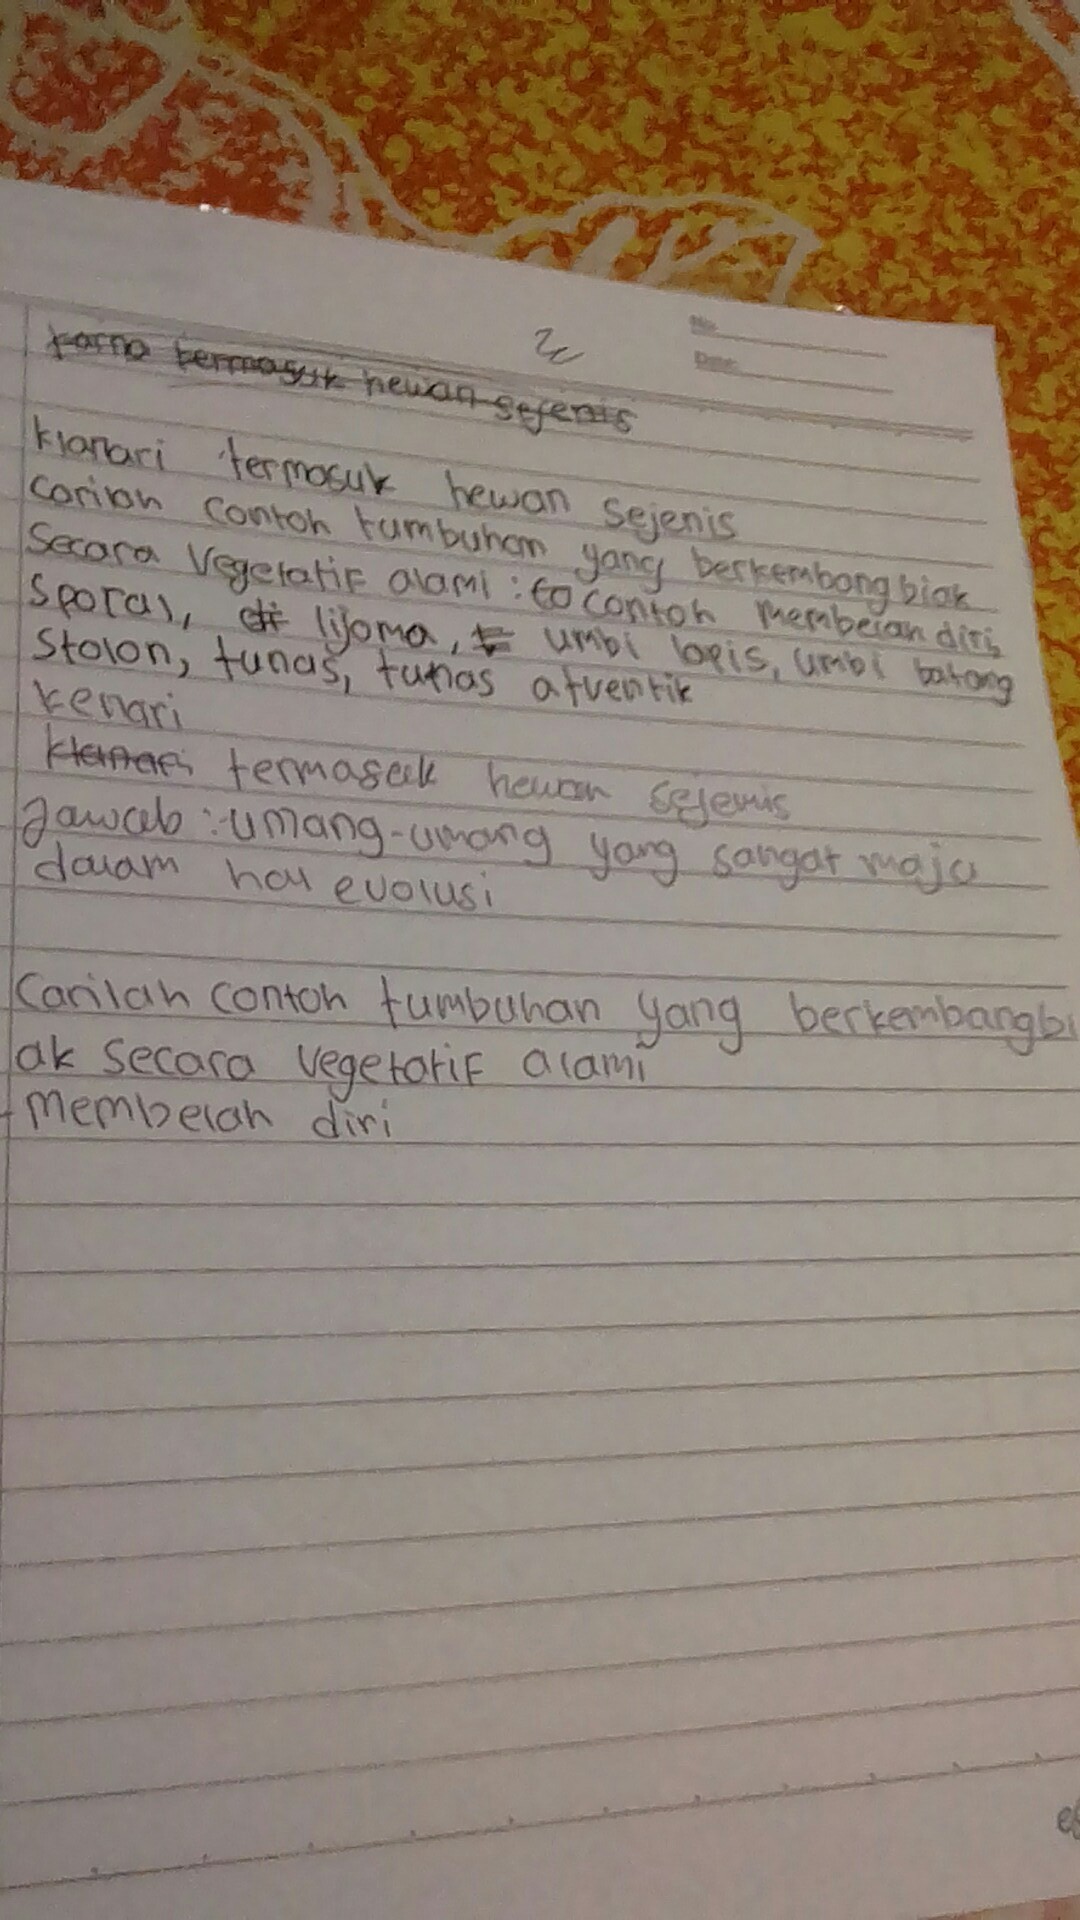 No.
Date
karna termasuk hewan sejenis
klanari termasuk hewan sejenis
carilah contoh tumbuhan yang berkembangbiak
Secara Vegetatif alami : 10 contoh membelah diri,
Spora, lijoma, umbi lapis, umbi batang
Stolon, tunas, tunas atventik
kenari
termasuk hewan sejenis
Jawab : umang-umang yang sangat maju
dalam hal evolusi
Carilah contoh tumbuhan yang berkembangbi
ak Secara Vegetatif alami
- Membelah diri